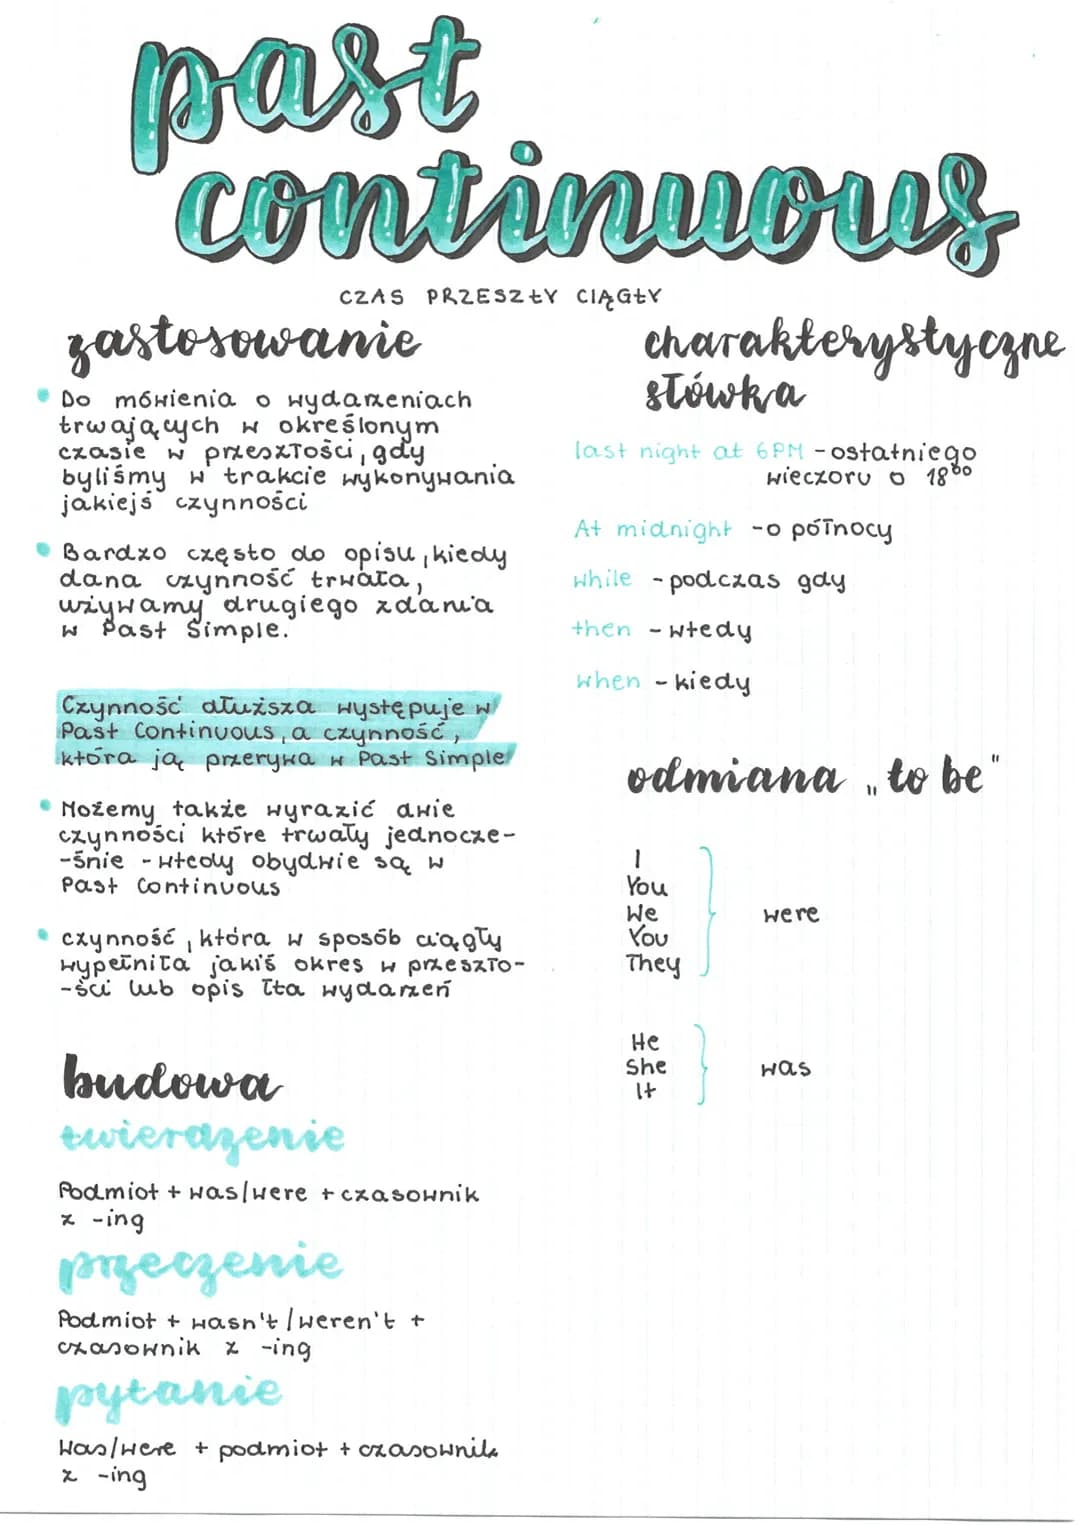 past
continuous
CZAS PRZESZŁY CIĄGŁY
zastosowanie
Do mówienia o wydarzeniach
trwających w określonym
czasie w przeszłości, gdy
byliśmy w trakcie wykonywania
jakiejś czynności
Bardzo często do opisu, kiedy
dana czynność trwała,
używamy drugiego zdania
w Past Simple.
Czynność dłuższa występuje w
Past Continuous, a czynność,
która ją przerywa w Past Simple
Możemy także wyrazić dwie
czynności które trwały jednocze-
-śnie - wtedy obydwie są w
Past Continuous
czynność, która w sposób ciągły
wypełniła jakiś okres w przeszło-
-ści lub opis tła wydarzeń
budowa
twierdzenie
Podmiot + was/were + czasownik
z -ing
przeczenie
Podmiot + wasn't / weren't +
czasownik z -ing
pytanie
Was/were + podmiot + czasownik
z -ing
charakterystyczne
słówka
last night at 6PM - ostatniego
wieczoru o 18⁰⁰
At midnight - o północy
while - podczas gdy
then - wtedy
when - kiedy
odmiana „to be"
I
You
We
You
They
were
He
She
It
was